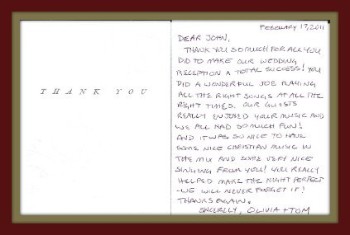 THANK YOU
FEBRUARY 17, 2011
DEAR JOHN,
THANK YOU SO MUCH FOR ALL YOU
DID TO MAKE OUR WEDDING
RECEPTION A TOTAL SUCCESS! YOU
DID A WONDERFUL JOB PLAYING
ALL THE RIGHT SONGS AT ALL THE
RIGHT TIMES. OUR GUESTS
REALLY ENJOYED YOUR MUSIC AND
WE ALL HAD SO MUCH FUN!
AND IT WAS SO NICE TO HAVE
SOME NICE CHRISTIAN MUSIC IN
THE MIX AND SOME VERY NICE
SINGING FROM YOU! YOU REALLY
HELPED MAKE THE NIGHT PERFECT
- WE WILL NEVER FORGET IT!
THANKS AGAIN,
SINCERELY, OLIVIA + TOM